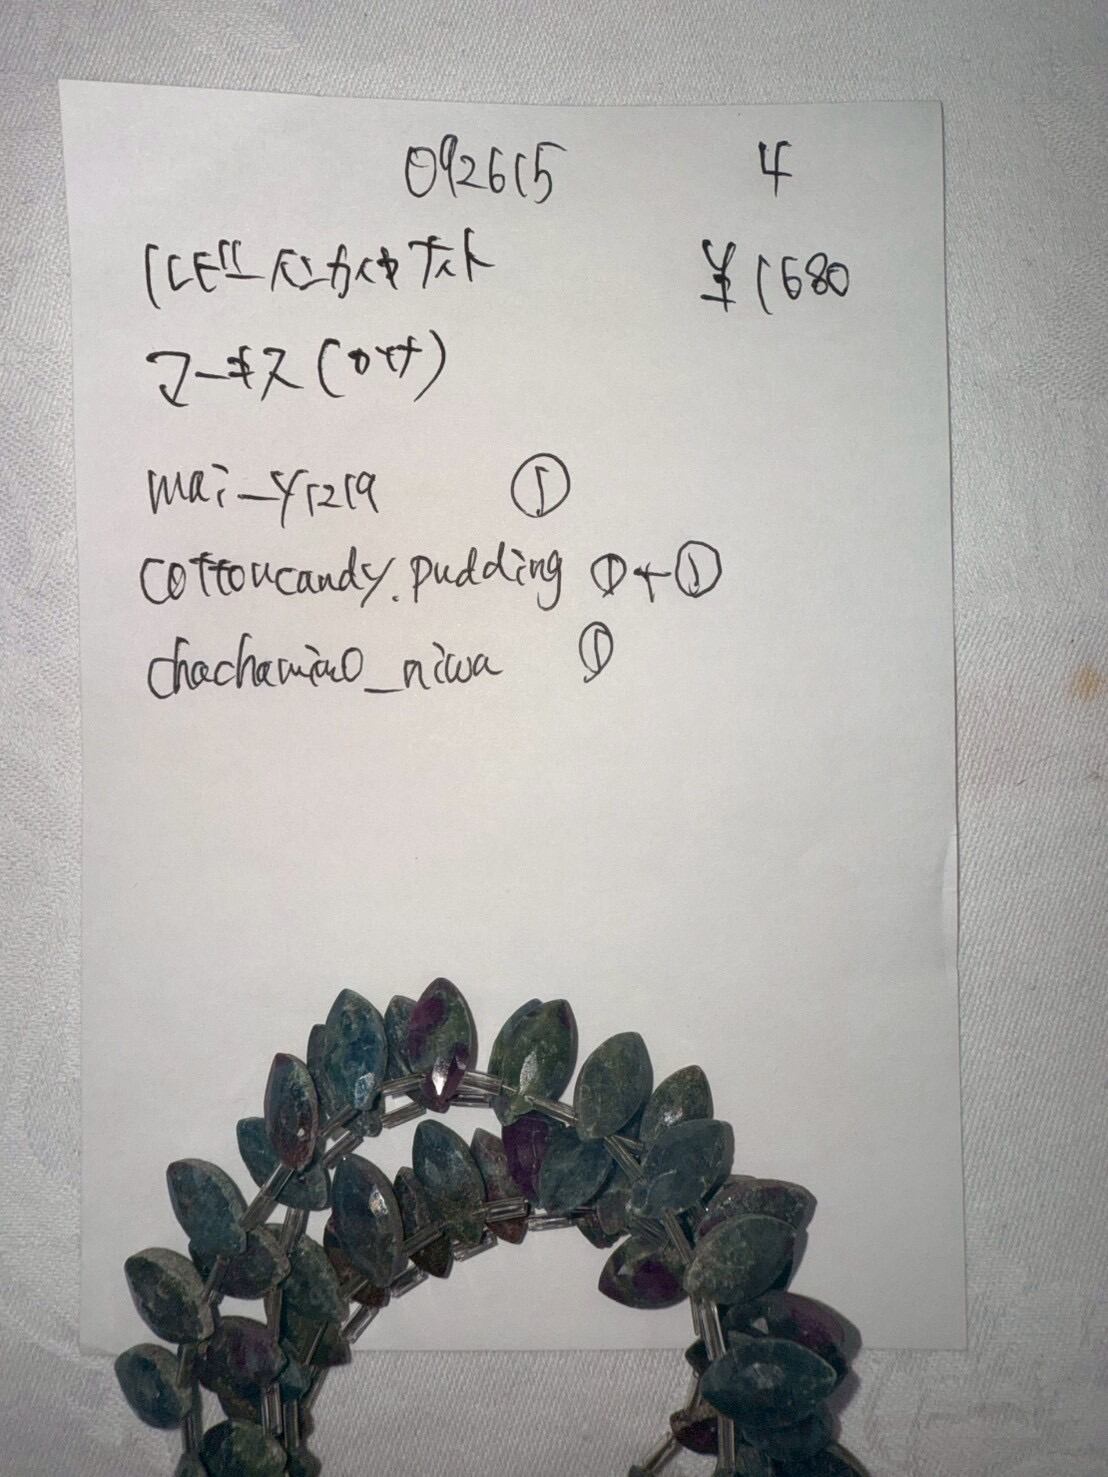 092615 4
ルビーインカイヤナイト ¥1680
マーキス(カット)
mai_y1219 ①
cottoncandy.pudding ①+①
chachamiao_niwa ①